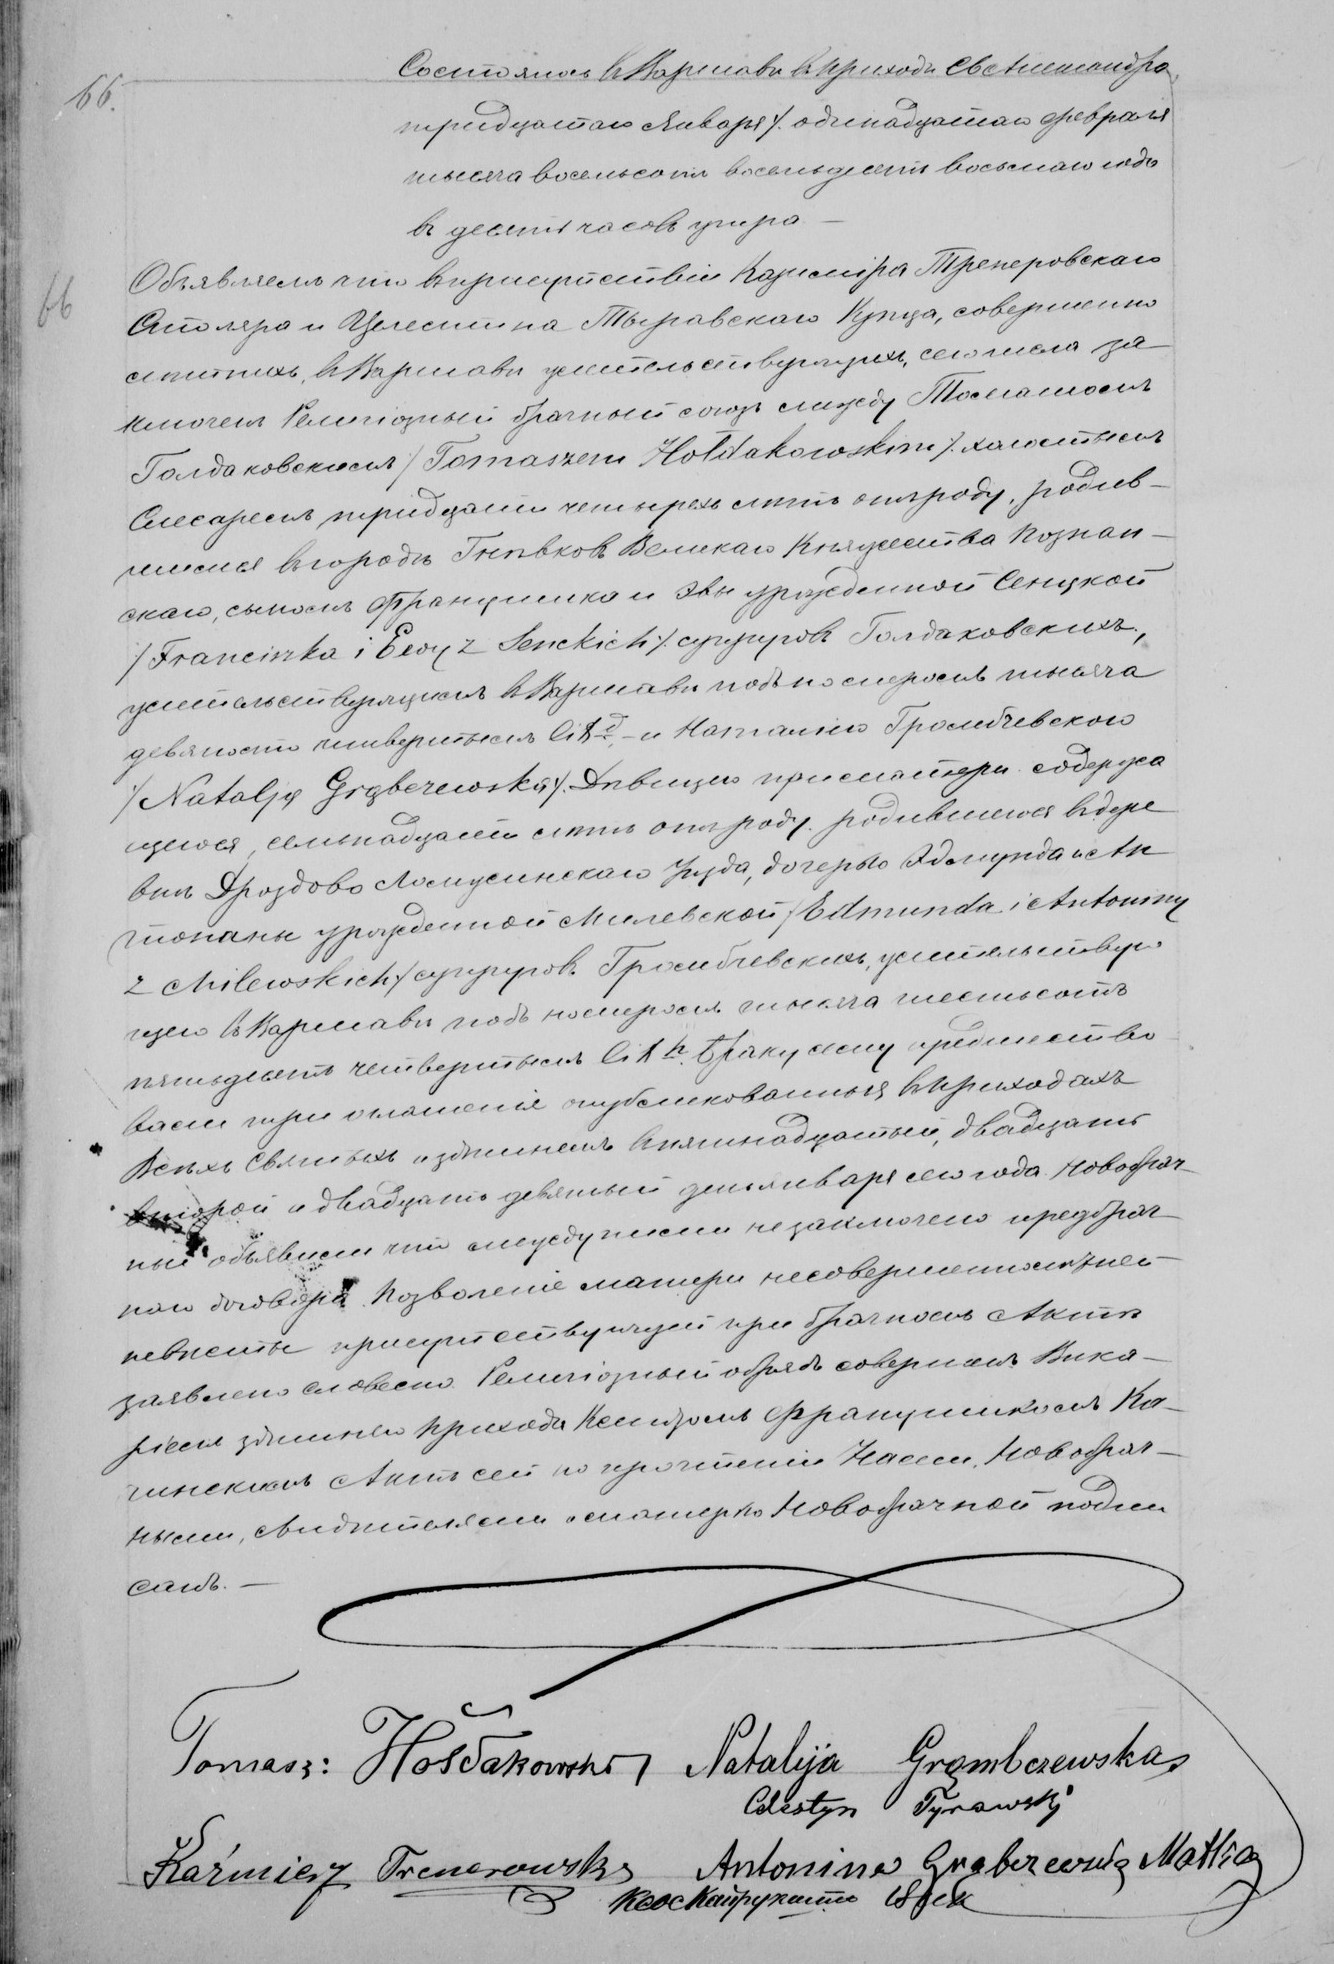 66.
Состоялось въ Варшавѣ въ приходѣ Св Александра
тридцатаго Января /. одинадцатаго февраля
тысяча восемьсотъ восемьдесятъ восьмаго года
въ десять часовъ утра —
66
Объявляемъ что въ присутствіи Казимира Тренеровскаго
Столяра и Целестина Тыравскаго Купца, совершенно
лѣтнихъ, въ Варшавѣ жительствующихъ, сего числа за
ключенъ Религіозный брачный союзъ между Томашомъ
Голдаковскимъ /Tomaszem Hołdakowskim/. холостымъ
Слесаремъ, тридцати четырехъ лѣтъ отъ роду, родив-
шимся въ городѣ Гнѣвковѣ Великаго Княжества Познан-
скаго, сыномъ Францишка и Эвы урожденной Сенцкой
/Franciszka i Ewy z Senckich/. супруговъ Голдаковскихъ,
жительствующимъ въ Варшавѣ подъ номеромъ тысяча
девяносто четвертымъ lit d, — и Наталіею Громбчевскою
/Natalją Grąbczewską/. Дѣвицею при матери содержа
щеюся, семьнадцати лѣтъ отъ роду, родившеюся въ дере
внѣ Дроздово Ломжинскаго Уѣзда, дочерью Эдмунда и Ан
тонины урожденной Милевской /Edmunda i Antoniny
z Milewskich/ супруговъ Громбчевскихъ, жительствую
щею въ Варшавѣ подъ номеромъ тысяча шестьсотъ
пятьдесятъ четвертымъ lit h. Браку сему предшество
вали три оглашенія опубликованныя въ приходахъ
Всѣхъ Святыхъ и здѣшнемъ въ пятнадцатый, двадцать
второй и двадцать девятый день января сего года. Новобрач-
ные объявили что между ними не заключено предбрач
наго договора. Позволеніе матери несовершеннолѣтней
невѣсты присутствующей при брачномъ Актѣ
заявлено словесно. Религіозный обрядъ совершенъ Вика-
ріемъ здѣшняго прихода Ксендзомъ Францишкомъ Ка-
чинскимъ Актъ сей по прочтеніи Нами, Новобрач-
ными, свидѣтелями и матерью Новобрачной подпи
санъ. —
Tomasz: Hołdakowski Natalija Grąmbczewska
Celestyn Tyrawski
Kaźmierz Trenerowski Antonina Grąbczewska Matka